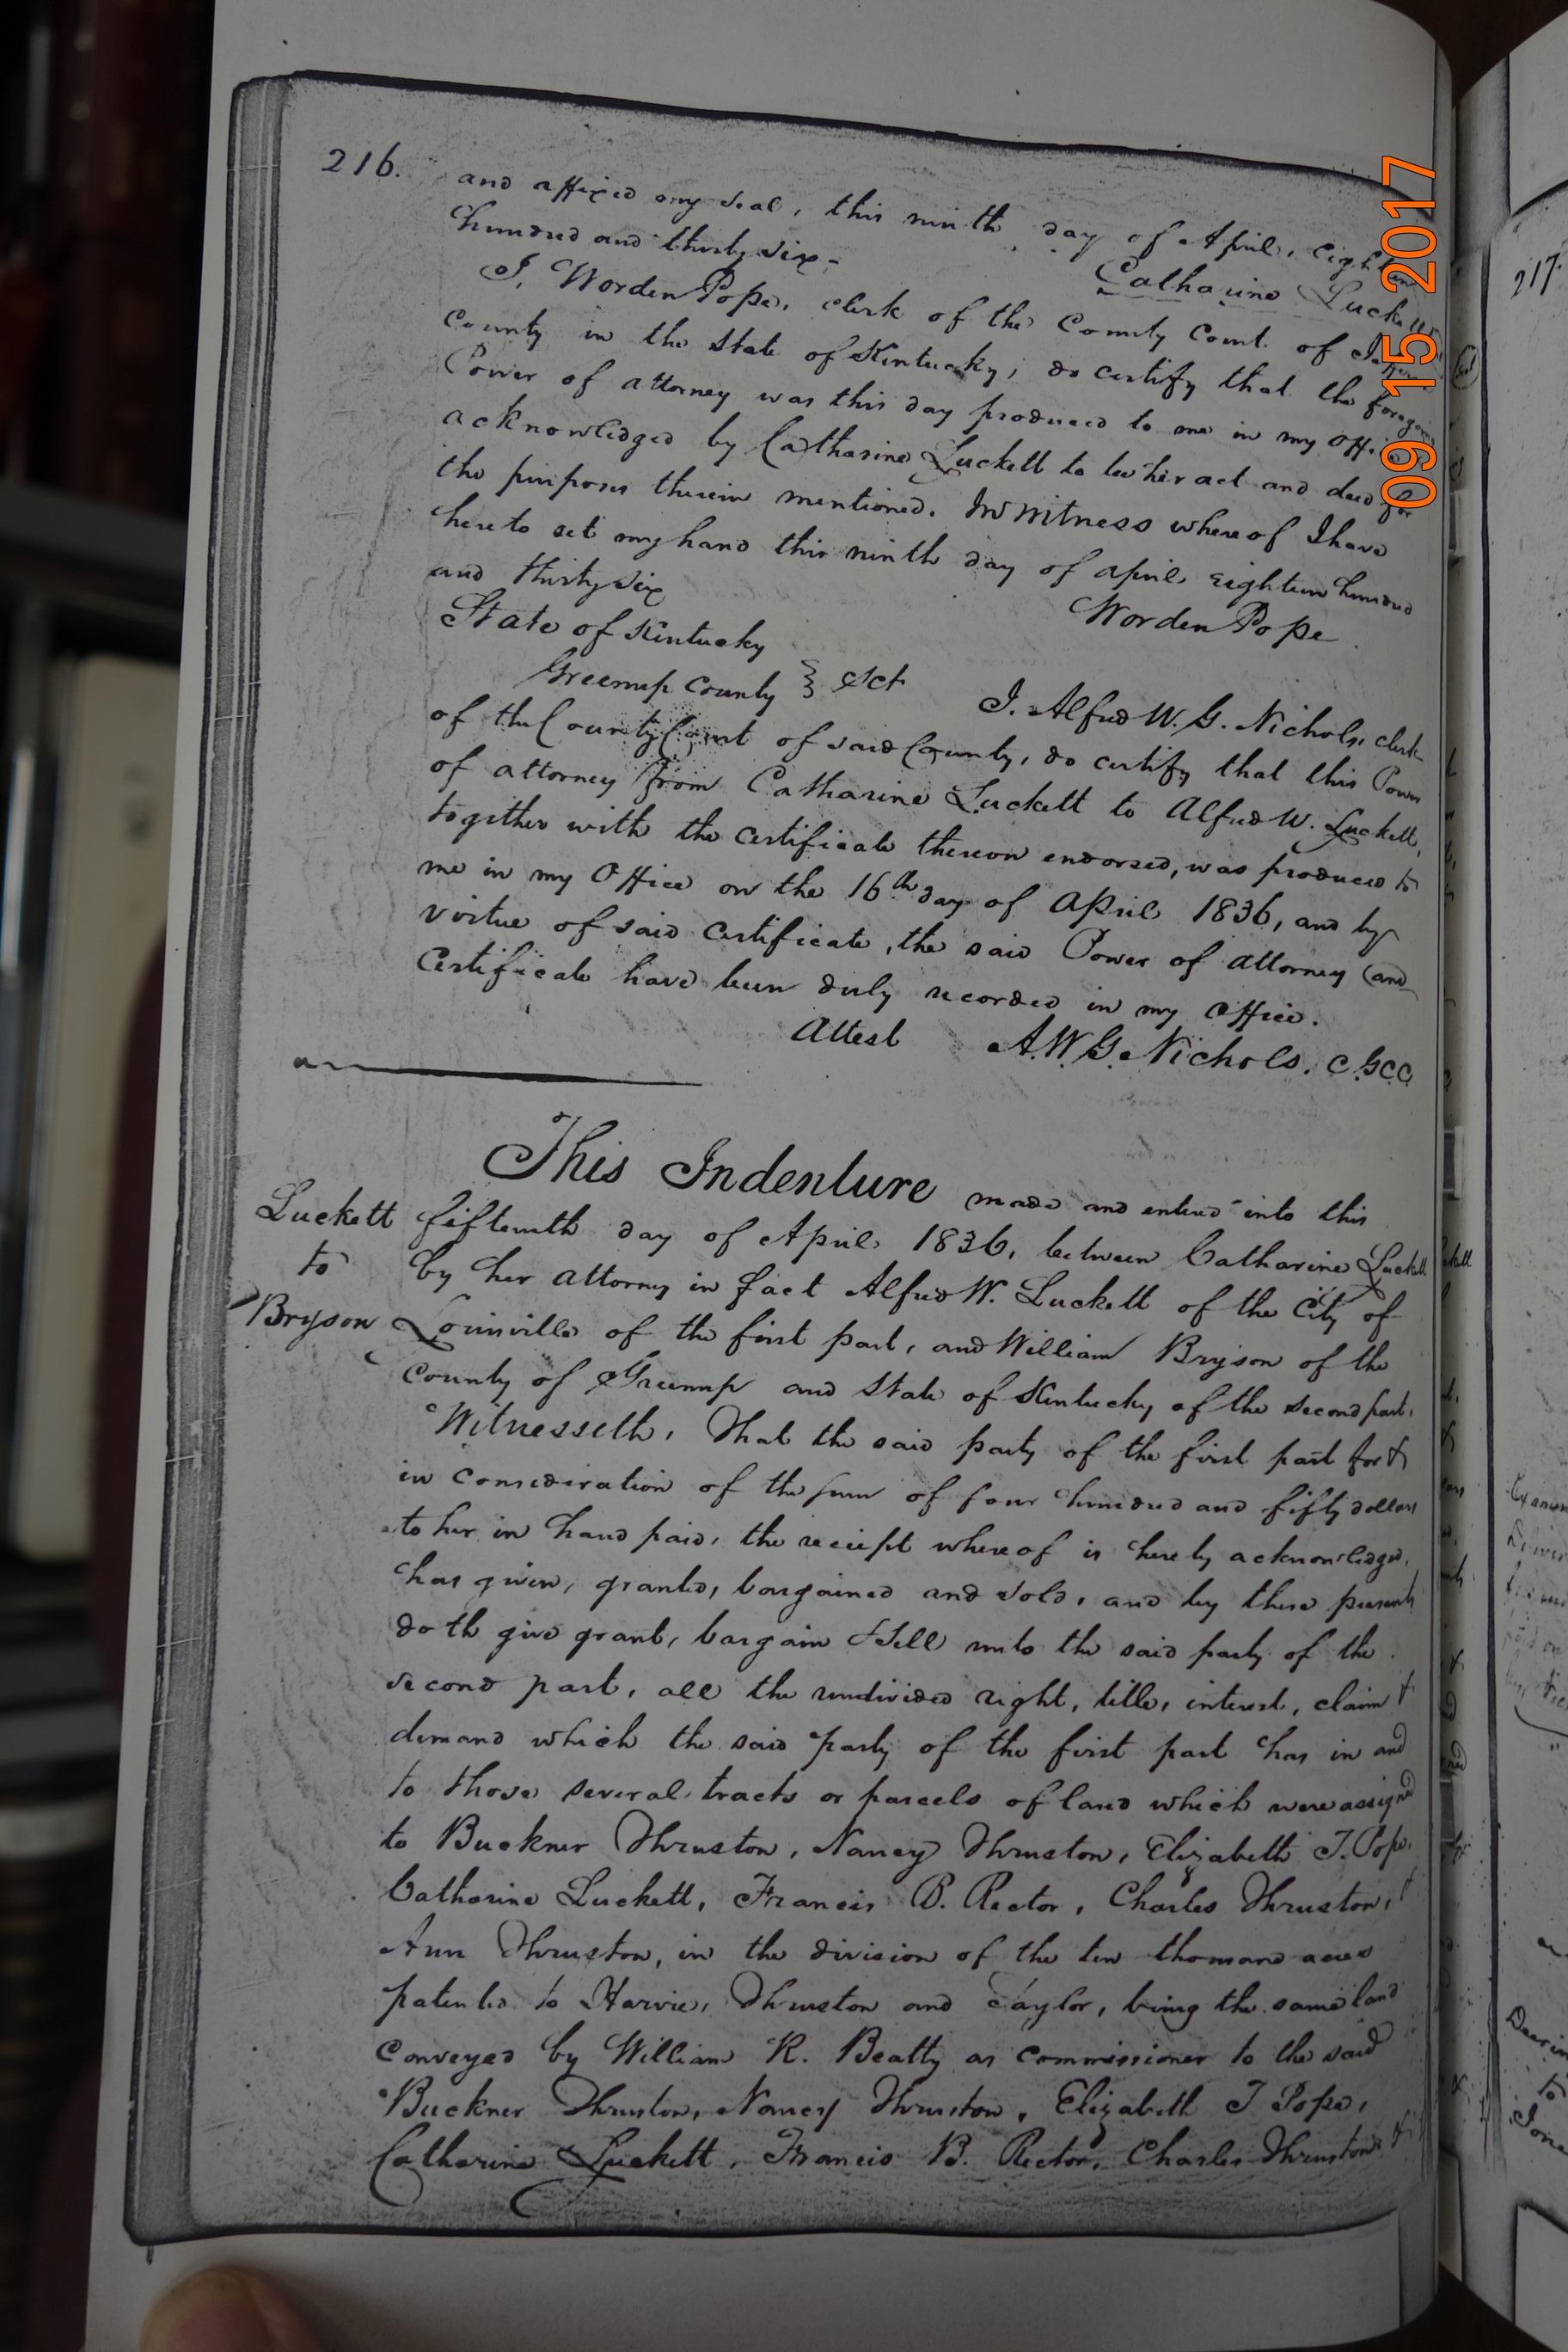 216.
and affixed my seal, this ninth day of April, eighteen
hundred and thirty six-
Catharine Luckett
I, Worden Pope, clerk of the County Court of
County in the State of Kentucky, do certify that the foregoing
Power of attorney was this day produced to me in my office
acknowledged by Catharine Luckett to be her act and deed for
the purposes therein mentioned. In Witness whereof I have
hereto set my hand this ninth day of april eighteen hundred
and thirty six
Worden Pope
State of Kentucky
Greenup County } Sct
I. Alfred W. G. Nichols, clerk
of the County Court of said County, do certify that this Power
of attorney from Catharine Luckett to Alfred W. Luckett,
together with the certificate thereon endorsed, was produced to
me in my Office on the 16th day of April 1836, and by
virtue of said certificate, the said Power of attorney and
Certificate have been duly recorded in my office.
Attest A. W. G. Nichols. C.G.C.C.
This Indenture made and entered into this
Luckett fifteenth day of April 1836, between Catharine Luckett
to by her attorney in fact Alfred W. Luckett of the City of
Bryson Louisville of the first part, and William Bryson of the
County of Greenup and State of Kentucky of the second part,
Witnesseth, That the said party of the first part for &
in consideration of the sum of four hundred and fifty dollars
to her in hand paid, the receipt whereof is hereby acknowledged,
has given, granted, bargained and sold, and by these presents
doth give grant, bargain & Sell unto the said party of the
second part, all the undivided right, title, interest, claim &
demand which the said party of the first part has in and
to those several tracts or parcels of land which were assigned
to Buckner Thruston, Nancy Thruston, Elizabeth T. Pope,
Catharine Luckett, Francis B. Rector, Charles Thruston, &
Ann Thruston, in the division of the ten thousand acres
patented to Harvie, Thruston and Taylor, being the same land
conveyed by William R. Beatty as commissioner to the said
Buckner Thruston, Nancy Thruston, Elizabeth T Pope,
Catharine Luckett, Francis B. Rector, Charles Thruston &
09 15 2017
217.